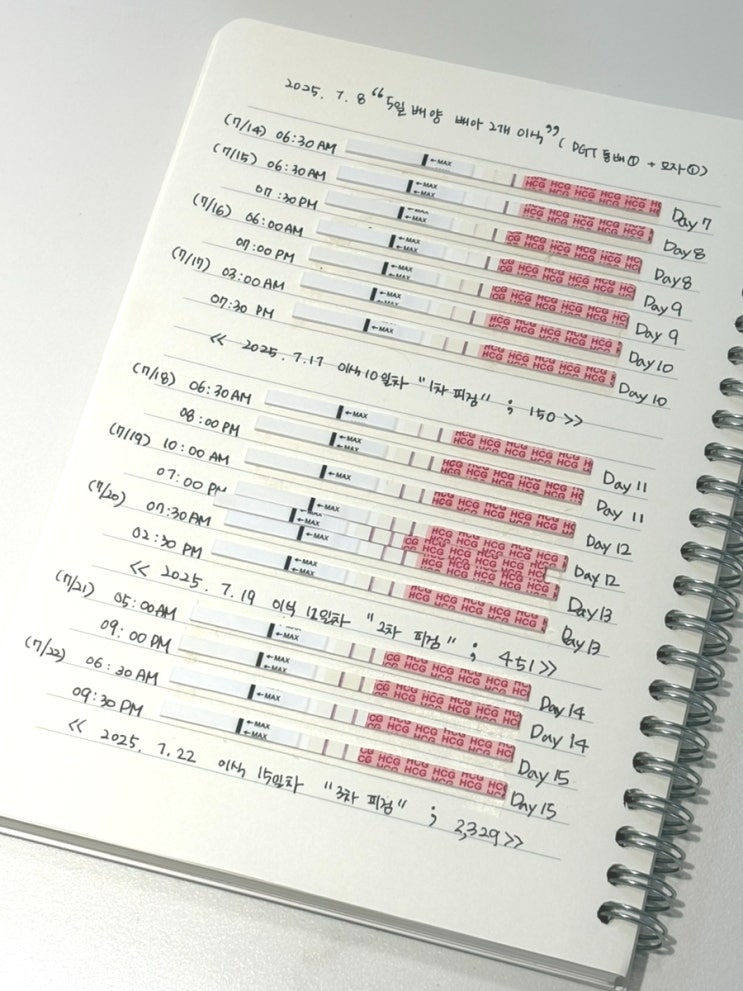 2025. 7. 8 “5일 배양 배아 2개 이식” ( PGT 통배① + 모자① )
(7/14) 06:30 AM ←MAX HCG HCG HCG HCG Day 7
(7/15) 06:30 AM ←MAX HCG HCG HCG HCG Day 8
07:30 PM ←MAX HCG HCG HCG HCG Day 8
(7/16) 06:00 AM ←MAX HCG HCG HCG HCG Day 9
07:00 PM ←MAX HCG HCG HCG HCG Day 9
(7/17) 03:00 AM ←MAX HCG HCG HCG HCG Day 10
07:30 PM ←MAX HCG HCG HCG HCG Day 10
<< 2025. 7. 17 이식 10일차 “1차 피검” ; 150 >>
(7/18) 06:30 AM ←MAX HCG HCG HCG HCG Day 11
08:00 PM ←MAX HCG HCG HCG HCG Day 11
(7/19) 10:00 AM ←MAX HCG HCG HCG HCG Day 12
07:00 PM ←MAX HCG HCG HCG HCG Day 12
(7/20) 07:30 AM ←MAX HCG HCG HCG HCG Day 13
02:30 PM ←MAX HCG HCG HCG HCG Day 13
<< 2025. 7. 19 이식 12일차 “2차 피검” ; 451 >>
(7/21) 05:00 AM ←MAX HCG HCG HCG HCG Day 14
09:00 PM ←MAX HCG HCG HCG HCG Day 14
(7/22) 06:30 AM ←MAX HCG HCG HCG HCG Day 15
09:30 PM ←MAX HCG HCG HCG HCG Day 15
<< 2025. 7. 22 이식 15일차 “3차 피검” ; 2,329 >>